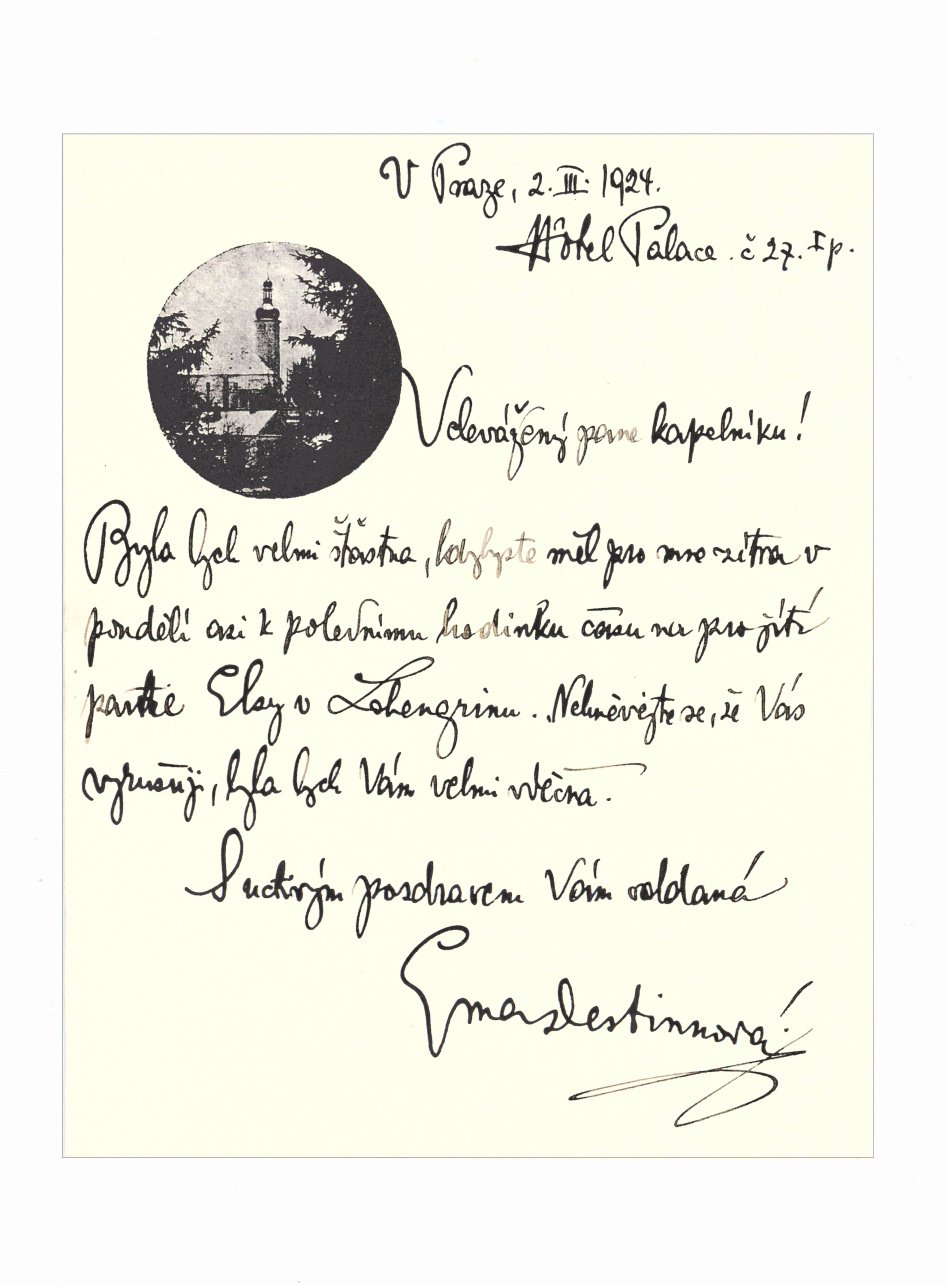 V Praze, 2. III. 1924.
Hôtel Palace. č 27. I p.
Velevážený pane kapelníku!
Byla bych velmi šťastna, kdybyste měl pro mne zítra v
pondělí asi k polednímu hodinku času na projití
partie Elsy v Lohengrinu. Nehněvejte se, že Vás
vyrušuji, byla bych Vám velmi vděčna.
S uctivým pozdravem Vám oddaná
Ema Destinnová.